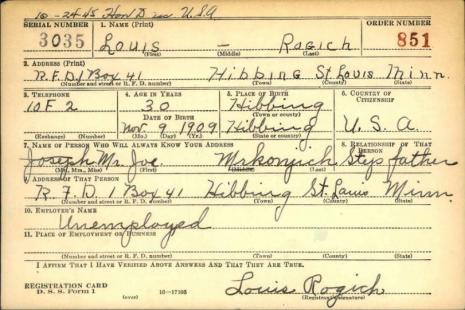 10-24-45 Hon D U.S.A
SERIAL NUMBER 1. NAME (Print) ORDER NUMBER
3035 Louis - Rogich 851
(First) (Last)
2. ADDRESS (Print)
R.F.D. 1 Box 41 Hibbing St. Louis Minn.
(Number and street or R. F. D. number) (Town) (County) (State)
3. TELEPHONE 4. AGE IN YEARS 5. PLACE OF BIRTH 6. COUNTRY OF CITIZENSHIP
10F2 30 Hibbing
(Town or county)
DATE OF BIRTH
Nov 9 1909 Hibbing U.S.A.
(Exchange) (Number) (Mo.) (Day) (Yr.) (State or country)
7. NAME OF PERSON WHO WILL ALWAYS KNOW YOUR ADDRESS 8. RELATIONSHIP OF THAT PERSON
Joseph Mr. Joe Mrkonjich Step father
(Mr., Mrs., Miss) (First) (Middle) (Last)
9. ADDRESS OF THAT PERSON
R.F.D. 1 Box 41 Hibbing St. Louis Minn
(Number and street or R. F. D. number) (Town) (County) (State)
10. EMPLOYER'S NAME
Unemployed
11. PLACE OF EMPLOYMENT OR BUSINESS
(Number and street or R. F. D. number) (Town) (County) (State)
I AFFIRM THAT I HAVE VERIFIED ABOVE ANSWERS AND THAT THEY ARE TRUE.
REGISTRATION CARD
D. S. S. Form 1 (over) 16-17105
Louis Rogich
(Registrant's signature)